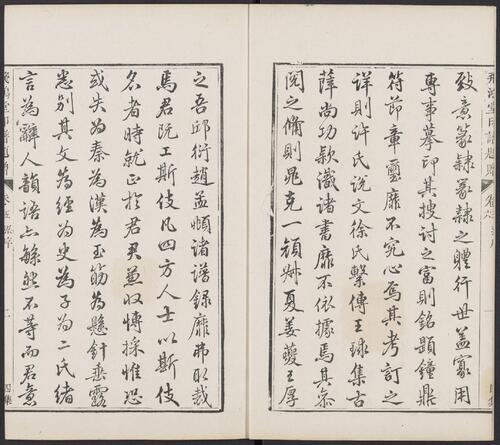 致意篆隸篆隸之體行世益寡用
專事摹印其搜討之富則銘題鐘鼎
符節章璽靡不究心焉其考訂之
詳則許氏說文徐氏繫傳王球集古
薛尚功款識諸書靡不依據焉其
閱之備則晁克一顏叔夏姜夔王厚
之吾邱衍趙孟頫諸譜錄靡弗取裁
焉君既工斯伎凡四方人士以斯伎
名者時就正於君君兼收博採惟恐
或失為秦為漢為玉筯為懸針垂露
悉別其文為經為史為子為二氏緒
言為辭人韻語亦繇然不等而君意
飛鴻堂印譜
卷五
四集